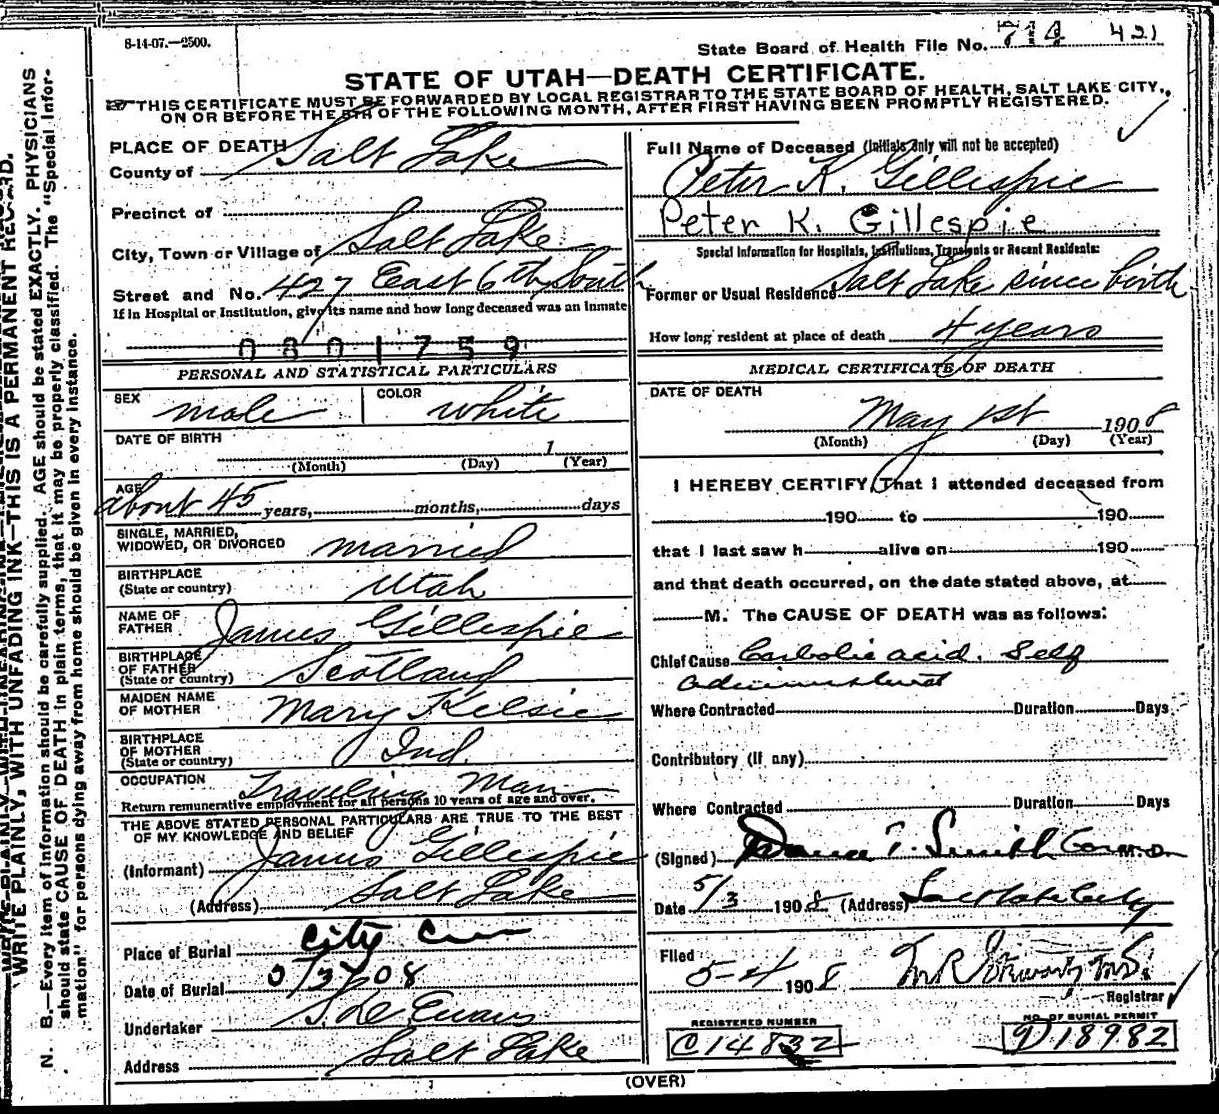 8-14-07.—2500.
State Board of Health File No. 714 421
STATE OF UTAH—DEATH CERTIFICATE.
THIS CERTIFICATE MUST BE FORWARDED BY LOCAL REGISTRAR TO THE STATE BOARD OF HEALTH, SALT LAKE CITY,
ON OR BEFORE THE 5TH OF THE FOLLOWING MONTH, AFTER FIRST HAVING BEEN PROMPTLY REGISTERED.
WRITE PLAINLY, WITH UNFADING INK—THIS IS A PERMANENT RECORD.
N. B.—Every item of information should be carefully supplied. AGE should be stated EXACTLY. PHYSICIANS
should state CAUSE OF DEATH in plain terms, that it may be properly classified. The "Special Infor-
mation" for persons dying away from home should be given in every instance.
PLACE OF DEATH
County of Salt Lake
Precinct of
City, Town or Village of Salt Lake
Street and No. 427 East 6th South
If in Hospital or Institution, give its name and how long deceased was an inmate
0801759
PERSONAL AND STATISTICAL PARTICULARS
SEX male COLOR white
DATE OF BIRTH
1
(Month) (Day) (Year)
AGE about 45 years, months, days
SINGLE, MARRIED,
WIDOWED, OR DIVORCED married
BIRTHPLACE
(State or country) Utah
NAME OF
FATHER James Gillespie
BIRTHPLACE
OF FATHER
(State or country) Scotland
MAIDEN NAME
OF MOTHER Mary Kelsie
BIRTHPLACE
OF MOTHER
(State or country) Ind.
OCCUPATION Traveling Man
Return remunerative employment for all persons 10 years of age and over.
THE ABOVE STATED PERSONAL PARTICULARS ARE TRUE TO THE BEST
OF MY KNOWLEDGE AND BELIEF
(Informant) James Gillespie
(Address) Salt Lake
Place of Burial City Cem
Date of Burial 5/3/08
Undertaker Evans
Address Salt Lake
Full Name of Deceased (Initials only will not be accepted)
Peter K. Gillespie
Peter K. Gillespie
Special Information for Hospitals, Institutions, Transients or Recent Residents:
Former or Usual Residence Salt Lake since birth
How long resident at place of death 4 years
MEDICAL CERTIFICATE OF DEATH
DATE OF DEATH
May 1st 1908
(Month) (Day) (Year)
I HEREBY CERTIFY, That I attended deceased from
190 to 190
that I last saw h alive on 190
and that death occurred, on the date stated above, at
M. The CAUSE OF DEATH was as follows:
Chief Cause Carbolic acid. Self
administered
Where Contracted Duration Days
Contributory (if any)
Where Contracted Duration Days
(Signed) T. Smith M.D.
Date 5/3 1908 (Address) Salt Lake City
Filed 5-4 1908
Registrar
REGISTERED NUMBER
C14832
NO. OF BURIAL PERMIT
18982
(OVER)